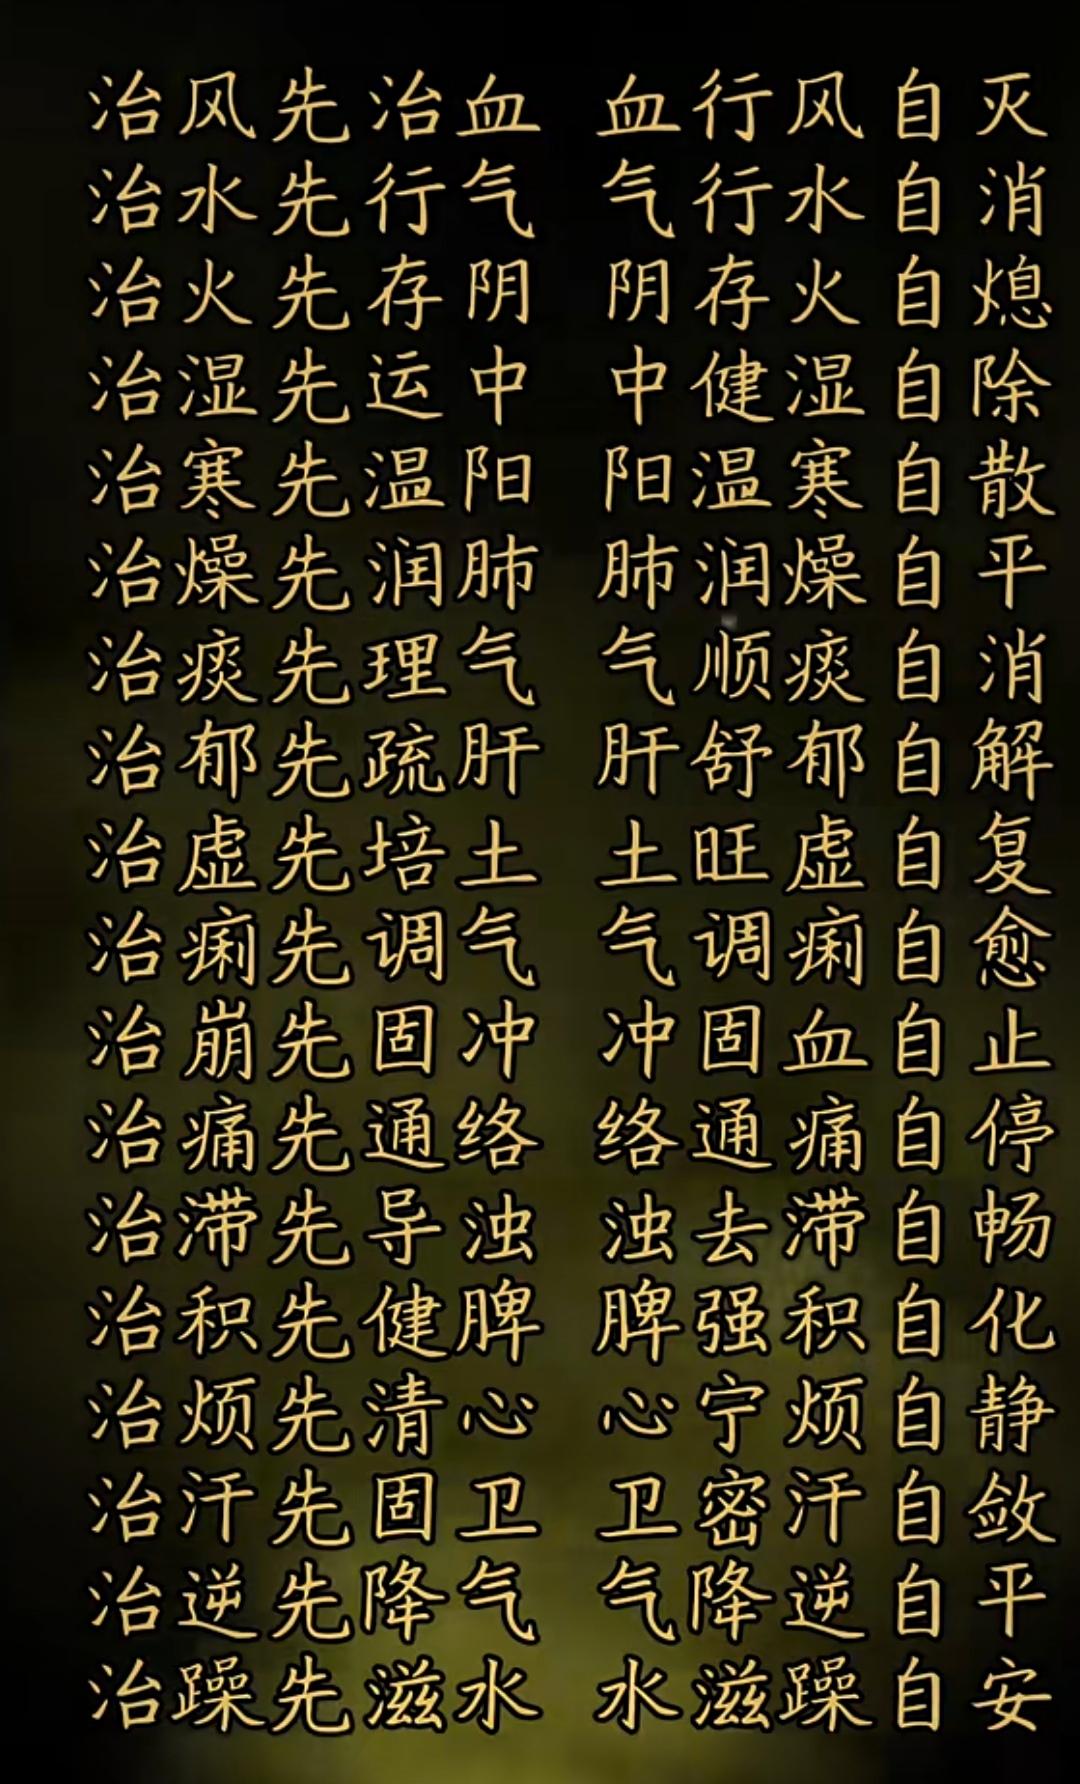 治风先治血 血行风自灭
治水先行气 气行水自消
治火先存阴 阴存火自熄
治湿先运中 中健湿自除
治寒先温阳 阳温寒自散
治燥先润肺 肺润燥自平
治痰先理气 气顺痰自消
治郁先疏肝 肝舒郁自解
治虚先培土 土旺虚自复
治痢先调气 气调痢自愈
治崩先固冲 冲固血自止
治痛先通络 络通痛自停
治滞先导浊 浊去滞自畅
治积先健脾 脾强积自化
治烦先清心 心宁烦自静
治汗先固卫 卫密汗自敛
治逆先降气 气降逆自平
治躁先滋水 水滋躁自安